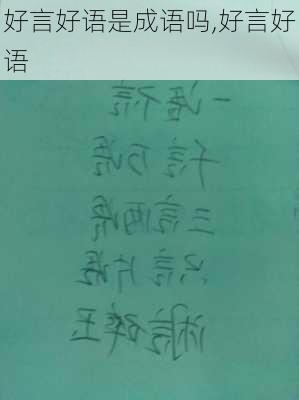 好言好语是成语吗,好言好
语
一语不言
千言万语
三言两语
只言片语
言碎玉